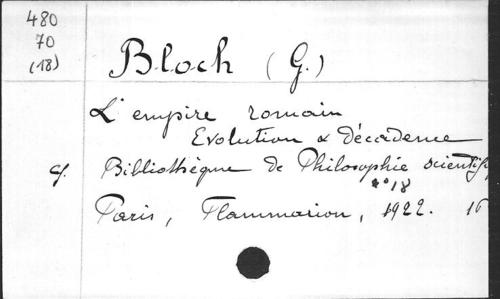 480
70
(18)
Bloch (G.)
L'empire romain
Evolution & décadence
cf. Bibliothèque de Philosophie scientif
n° 18
Paris, Flammarion, 1922. 16